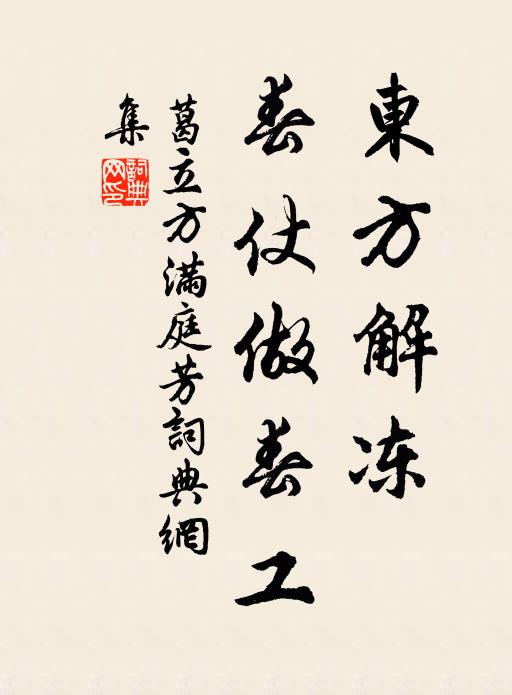 東方解冻
春仗做春工
葛立方滿庭芳詞典網
集
詞典網印